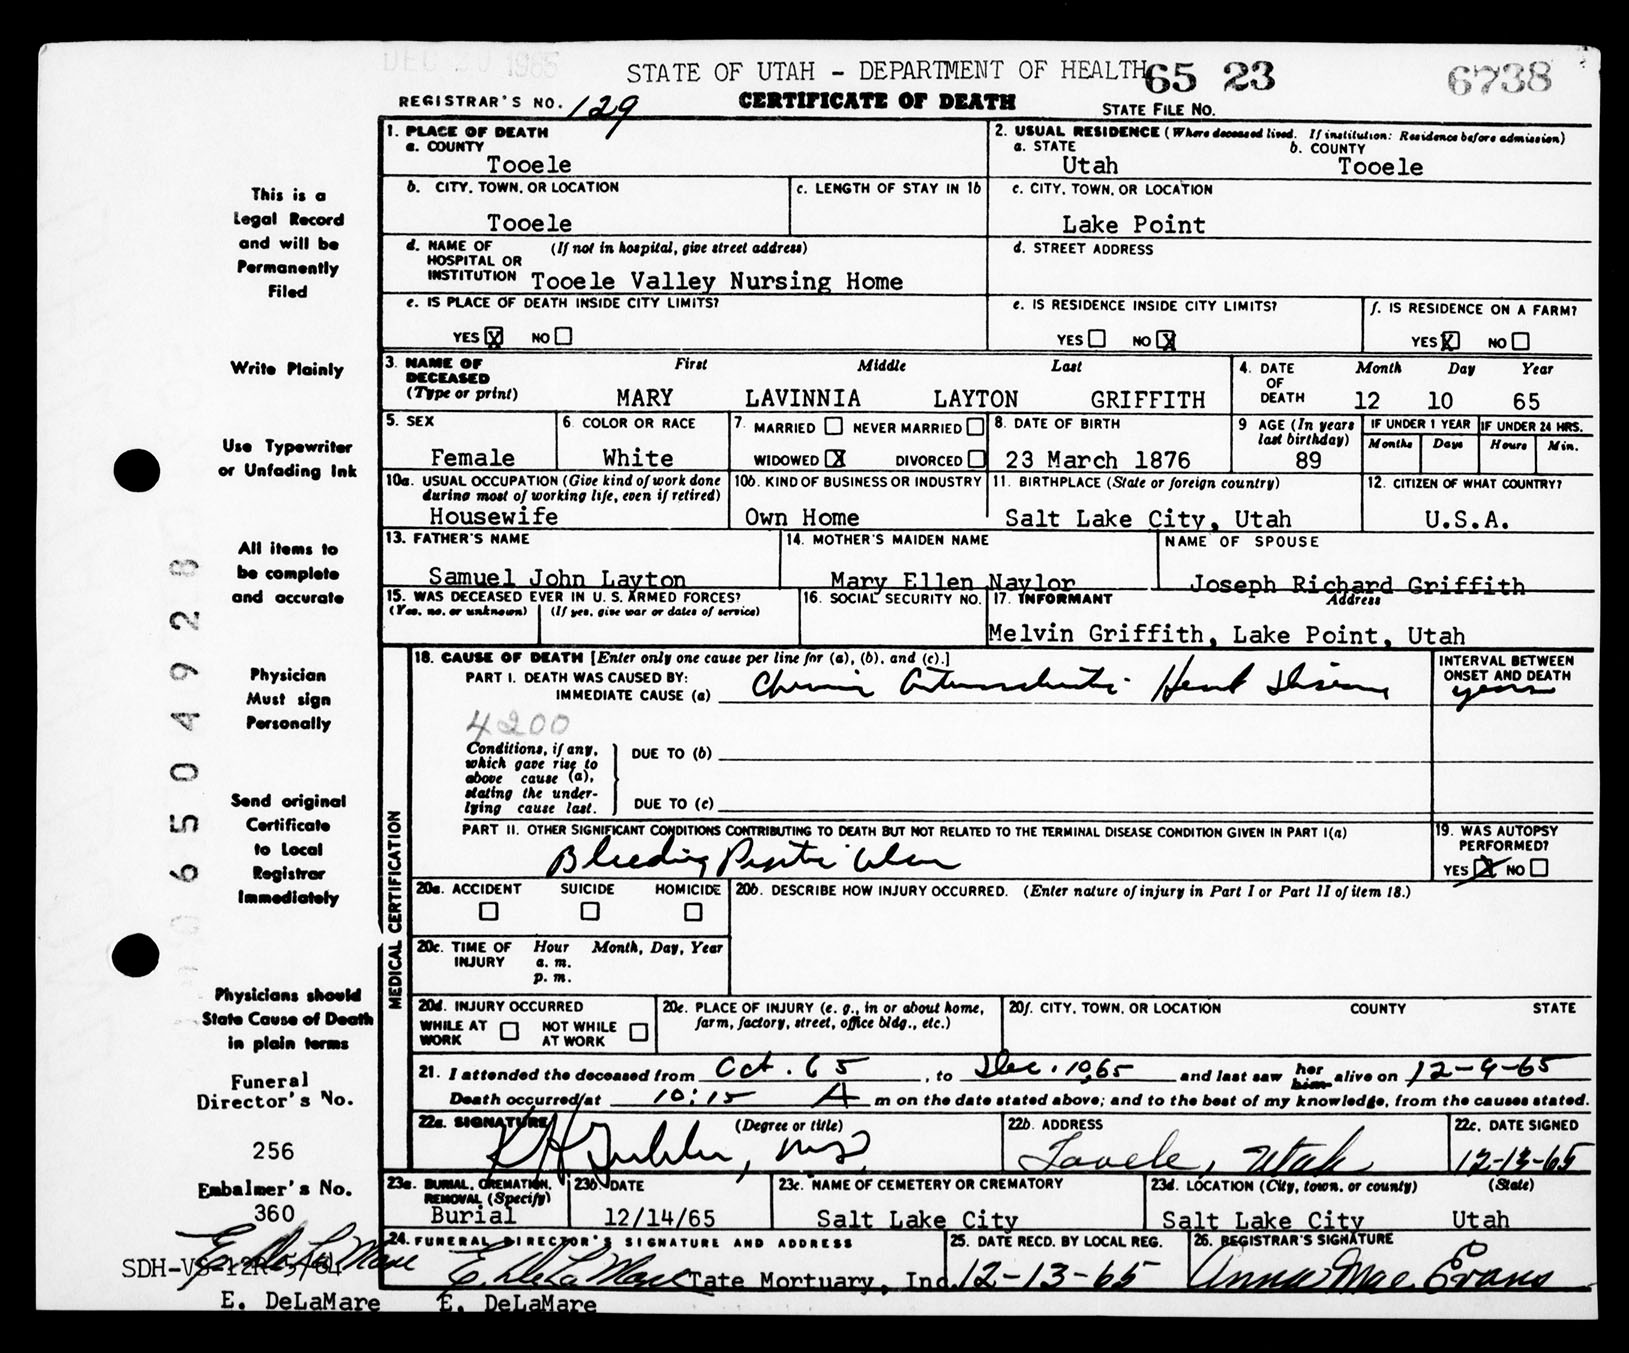 DEC 30 1965
STATE OF UTAH - DEPARTMENT OF HEALTH 65 23 6738
REGISTRAR'S NO. 129 CERTIFICATE OF DEATH STATE FILE NO.
1. PLACE OF DEATH
a. COUNTY
Tooele
2. USUAL RESIDENCE (Where deceased lived. If institution: Residence before admission)
a. STATE b. COUNTY
Utah Tooele
b. CITY, TOWN, OR LOCATION c. LENGTH OF STAY IN 1b
Tooele
c. CITY, TOWN, OR LOCATION
Lake Point
d. NAME OF (If not in hospital, give street address)
HOSPITAL OR
INSTITUTION Tooele Valley Nursing Home
d. STREET ADDRESS
e. IS PLACE OF DEATH INSIDE CITY LIMITS?
YES X NO
e. IS RESIDENCE INSIDE CITY LIMITS?
YES NO X
f. IS RESIDENCE ON A FARM?
YES X NO
3. NAME OF First Middle Last
DECEASED
(Type or print) MARY LAVINNIA LAYTON GRIFFITH
4. DATE Month Day Year
OF
DEATH 12 10 65
5. SEX
Female
6. COLOR OR RACE
White
7. MARRIED NEVER MARRIED
WIDOWED X DIVORCED
8. DATE OF BIRTH
23 March 1876
9 AGE (In years
last birthday)
89
IF UNDER 1 YEAR IF UNDER 24 HRS.
Months Days Hours Min.
10a. USUAL OCCUPATION (Give kind of work done
during most of working life, even if retired)
Housewife
10b. KIND OF BUSINESS OR INDUSTRY
Own Home
11. BIRTHPLACE (State or foreign country)
Salt Lake City, Utah
12. CITIZEN OF WHAT COUNTRY?
U.S.A.
13. FATHER'S NAME
Samuel John Layton
14. MOTHER'S MAIDEN NAME
Mary Ellen Naylor
NAME OF SPOUSE
Joseph Richard Griffith
15. WAS DECEASED EVER IN U. S. ARMED FORCES?
(Yes, no, or unknown) (If yes, give war or dates of service)
16. SOCIAL SECURITY NO.
17. INFORMANT Address
Melvin Griffith, Lake Point, Utah
MEDICAL CERTIFICATION
18. CAUSE OF DEATH [Enter only one cause per line for (a), (b), and (c).]
PART I. DEATH WAS CAUSED BY:
IMMEDIATE CAUSE (a) Chronic Arteriosclerotic Heart Disease
INTERVAL BETWEEN
ONSET AND DEATH
years
4200
Conditions, if any,
which gave rise to
above cause (a),
stating the under-
lying cause last.
DUE TO (b)
DUE TO (c)
PART II. OTHER SIGNIFICANT CONDITIONS CONTRIBUTING TO DEATH BUT NOT RELATED TO THE TERMINAL DISEASE CONDITION GIVEN IN PART I(a)
Bleeding Peptic Ulcer
19. WAS AUTOPSY
PERFORMED?
YES X NO
20a. ACCIDENT SUICIDE HOMICIDE
20b. DESCRIBE HOW INJURY OCCURRED. (Enter nature of injury in Part I or Part II of item 18.)
20c. TIME OF Hour Month, Day, Year
INJURY a. m.
p. m.
20d. INJURY OCCURRED
WHILE AT NOT WHILE
WORK AT WORK
20e. PLACE OF INJURY (e. g., in or about home,
farm, factory, street, office bldg., etc.)
20f. CITY, TOWN, OR LOCATION COUNTY STATE
21. I attended the deceased from Oct. 65, to Dec. 10, 65 and last saw her him alive on 12-9-65
Death occurred at 10:15 A m on the date stated above; and to the best of my knowledge, from the causes stated.
22a. SIGNATURE (Degree or title)
22b. ADDRESS
Tooele, Utah
22c. DATE SIGNED
12-13-65
23a. BURIAL, CREMATION,
REMOVAL (Specify)
Burial
23b. DATE
12/14/65
23c. NAME OF CEMETERY OR CREMATORY
Salt Lake City
23d. LOCATION (City, town, or county) (State)
Salt Lake City Utah
24. FUNERAL DIRECTOR'S SIGNATURE AND ADDRESS
E. DeLaMare Tate Mortuary, Inc.
E. DeLaMare
25. DATE RECD. BY LOCAL REG.
12-13-65
26. REGISTRAR'S SIGNATURE
Anna Mae Evans
This is a
Legal Record
and will be
Permanently
Filed
Write Plainly
Use Typewriter
or Unfading Ink
All items to
be complete
and accurate
Physician
Must sign
Personally
Send original
Certificate
to Local
Registrar
Immediately
Physicians should
State Cause of Death
in plain terms
Funeral
Director's No.
256
Embalmer's No.
360
E. DeLaMare
SDH-VS-12R-5/64
E. DeLaMare
6504928